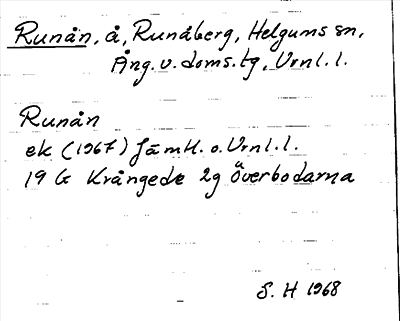 Runån, å, Runåberg, Helgums sn,
Ång. v. doms. tg, Vrnl. l.
Runån
ek (1967) Jämtl. o. Vrnl. l.
19 G Krångede 2g Överbodarna
S. H 1968